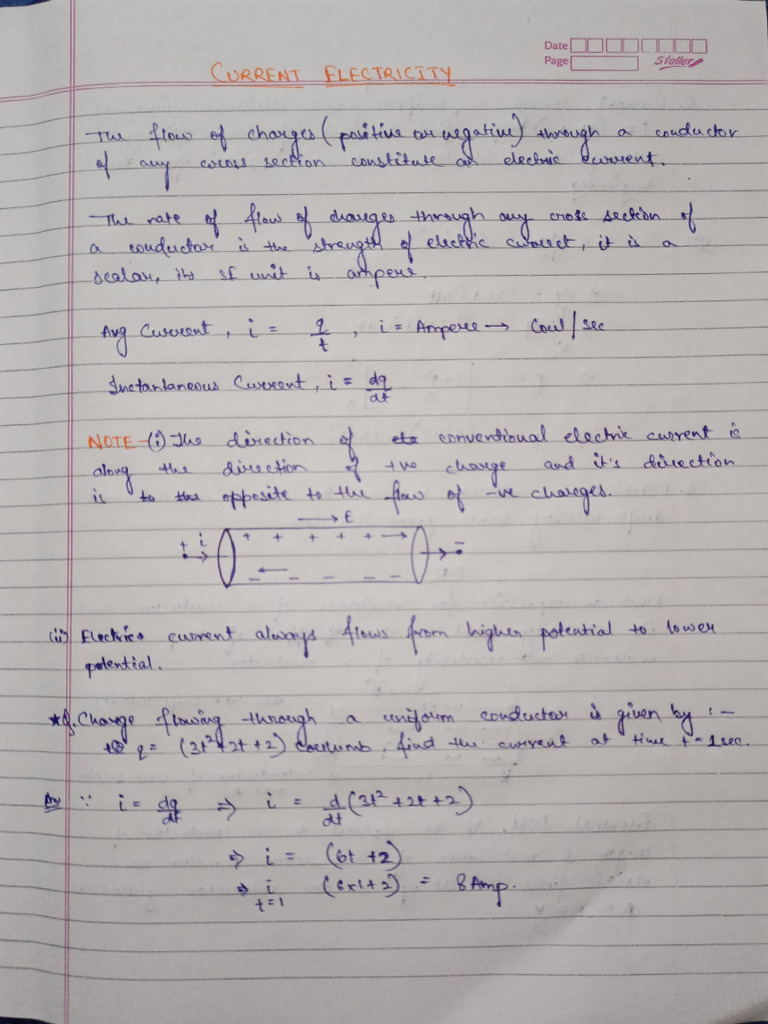 Date
Page Stellar
CURRENT ELECTRICITY
The flow of charges (positive or negative) through a conductor
of any cross section constitute an electric current.
The rate of flow of charges through any cross section of
a conductor is the strength of electric currect, it is a
scalar, its SI unit is ampere.
Avg Current, i = q/t, i = Ampere → Coul/sec
Instantaneous Current, i = dq/dt
NOTE - (i) The direction of conventional electric current is
along the direction of +ve charge and it's direction
is to the opposite to the flow of -ve charges.
→ E
+ i + + + + + → -
← - - - - -
(ii) Electric current always flows from higher potential to lower
potential.
*Q. Charge flowing through a uniform conductor is given by :-
q = (3t² + 2t + 2) coulumb, find the current at time t = 1 sec.
Ans ∵ i = dq/dt ⇒ i = d/dt (3t² + 2t + 2)
⇒ i = (6t + 2)
⇒ i t=1 (6×1+2) = 8 Amp.